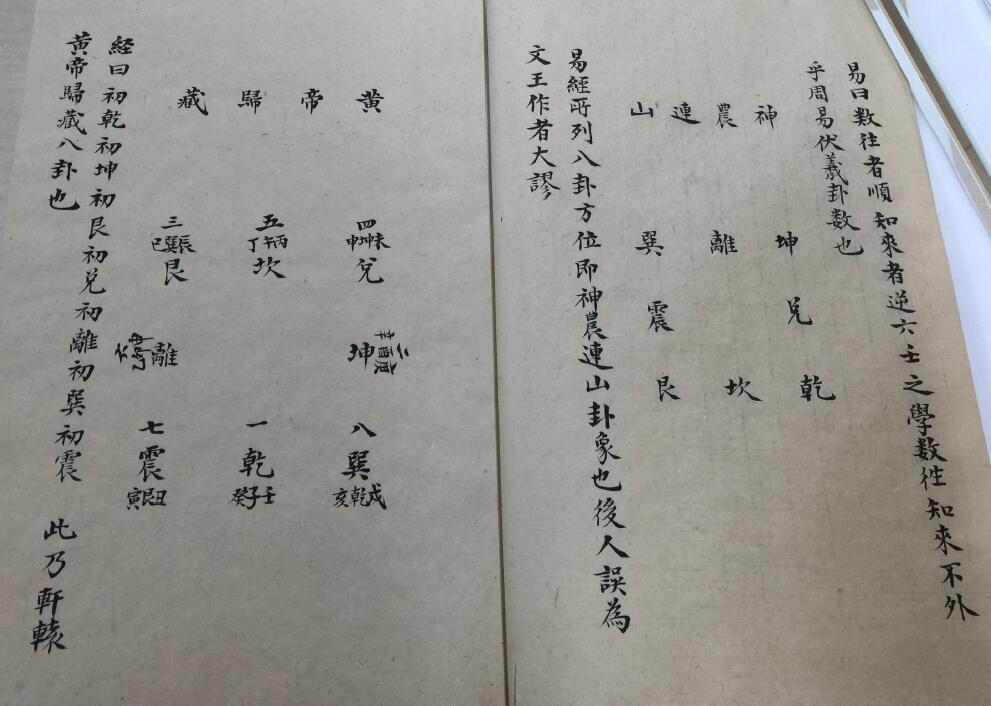 易曰数往者順知來者逆六壬之學数徃知來不外
乎周易伏羲卦数也
神農連山
坤離巽
兌震
乾坎艮
易經所列八卦方位即神農連山卦象也後人誤為
文王作者大謬
黃帝歸藏
四五三
未坤申丙午丁辰巽巳
兌坎艮
二
庚酉辛
坤離
八一七
巽乾震
戌乾亥壬子癸丑艮寅
経曰初乾初坤初艮初兌初離初巽初震此乃軒轅
黃帝歸藏八卦也